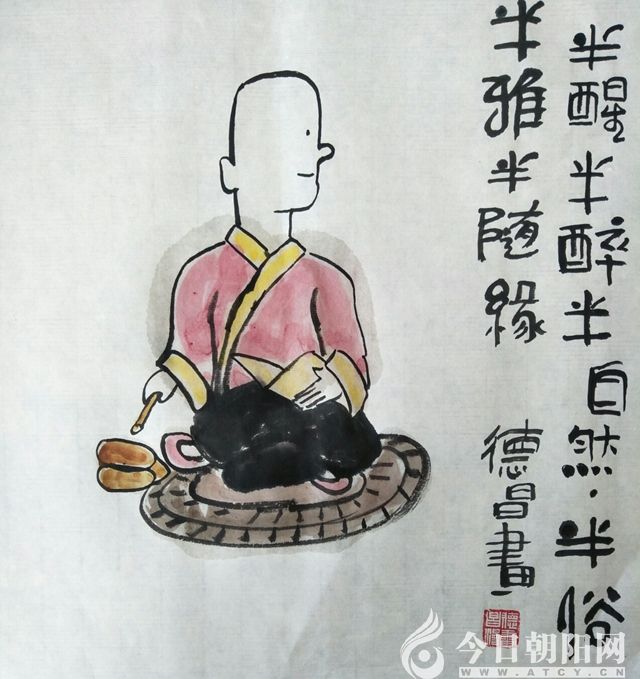 半醒半醉半自然·半俗
半雅半随緣
德昌畫
今日朝阳网
WWW.ATCY.CN